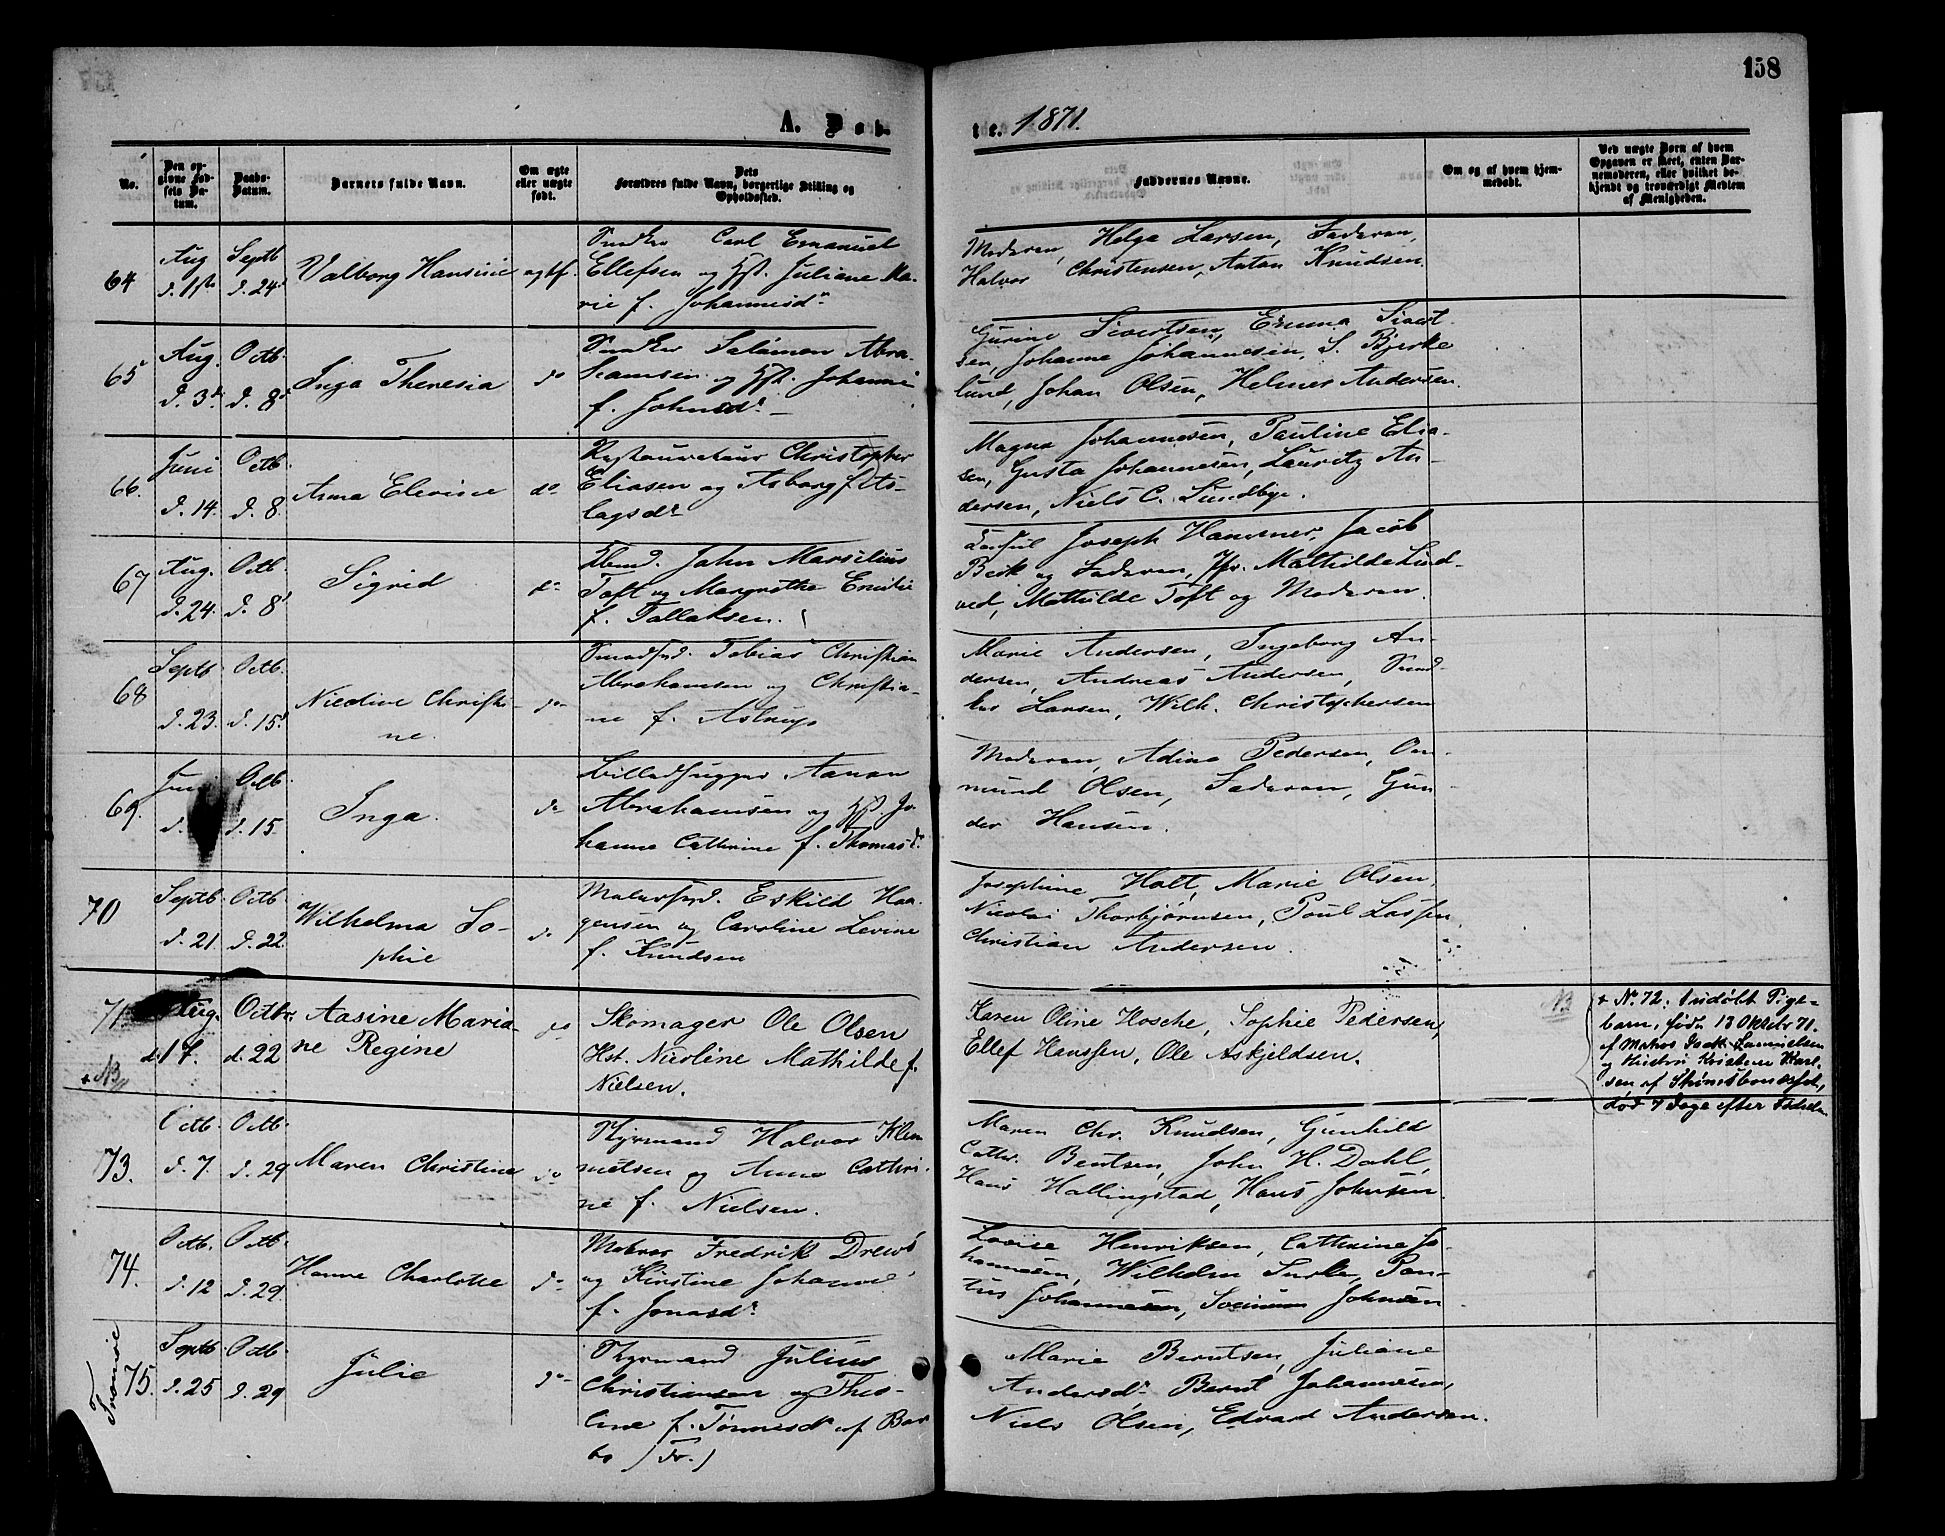 158
A. Døb-
te. 1871.
No.
Den op-
givne Fød-
sels Da-
tum.
Daabs-
Datum.
Barnets fulde Navn.
Om ægte
eller uægte
født.
Dets
Forældres fulde Navn, borgerlige Stilling og
Opholdssted.
Faddernes Navne.
Om og af hvem hjem-
medøbt.
Ved uægte Børn af hvem
Opgaven er skeet, enten Bar-
nemoderen, eller hvilket be-
kjendt og troværdigt Medlem
af Menigheden.
64
Aug
d. 1ste
Septb
d. 24de
Valborg Hansine
ægtef.
Snedker Carl Emanuel
Ellefsen og Hst. Juliane Ma-
rie f. Johannesdr
Moderen, Helga Larsen, Faderen,
Halvor Christensen, Anton Knudsen.
65
Aug.
d. 3de
Octb.
d. 8de
Inga Theresia
do
Snedker Salamon Abra-
hamsen og Hst. Johanne
f. Johnsdr
Gurine Sivertsen, Emma Sivert-
sen, Johanne Johannesen, S. Bjerke
lund, Johan Olsen, Helmer Andersen.
66.
Juni
d. 14.
Octb.
d. 8.
Anna Elevine
do
Restaurateur Christopher
Eliasen og Asborg f. As-
lagsdr
Magna Johannesen, Pauline Elia-
sen, Gusta Johannesen, Lauritz An-
dersen, Niels C. Lundbye.
67
Aug.
d. 24.
Octb.
d. 8de
Sigrid
do
John Marselius
Toft og Margrethe Emilie
f. Tallaksen.
Joseph Jacob
Beck og Faderen, Jfr. Mathilde Lind-
ved, Mathilde Toft og Moderen.
68
Septb
d. 23.
Octb.
d. 15de
Nicoline Christi-
ne.
do
Tobias Christian
Abrahamsen og Christia-
ne f. Astrup
Marie Andersen, Ingeborg An-
dersen, Andreas Andersen, Sned-
ker Larsen, Wilh. Christophersen
69.
d.
Octb.
d. 15.
Inga.
do
Billedhugger Aanon
Abrahamsen og Hst. Jo-
hanne Cathrine f. Thomasdr
Moderen, Adina Pedersen, Om-
mund Olsen, Faderen, Gun-
der Hansen.
70
Septb.
d. 21
Octb
d. 22.
Wilhelma So-
phie
do
Eskild Haa-
gensen og Caroline Levine
f. Knudsen
Josephine Holt, Marie Olsen,
Nicolai Thorbjørnsen, Poul Lassen
Christian Andersen.
71
Aug.
d. 17.
Octbr.
d. 22
Aasine Maria-
ne Regine
do
Skomager Ole Olsen
Hst. Nicoline Mathilde f.
Nielsen.
Karen Oline Hosche, Sophie Pedersen,
Ellef Hanssen, Ole Askjeldsen.
+ NB
NB
+ No. 72. Inddøbt Pige-
barn, født 13 Oktbr 71.
af Matros Isak Samuelsen
og Hustru Kristine Karl-
sen af
død 7 Dage efter Fødselen
73.
Octb.
d. 7
Octb.
d. 29
Maren Christine
do
Styrmand Halvor Klem
metsen og Anne Cathri-
ne f. Nielsen.
Maren Chr. Knudsen, Gunhild
Cathr. Bentsen, John H. Dahl,
Hans Hallingstad, Hans Johnsen.
74.
Octb.
d. 12
Octb.
d. 29.
Hanne Charlotte
do
Matros Fredrik Drews
og Kirstine Johanne
f. Jonasdr
Lovise Henriksen, Cathrine Jo-
hannesen, Wilhelm Pon-
tus Johannesen, Johnsen
Tromøe
75.
Septb.
d. 25
Octb.
d. 29
Julie
do
Styrmand Julius
Christiansen og Theo-
line f. Tønnesdr af Bar
bo (Tr.)
Marie Berntsen, Juliane
Andersdr Bernt Johannesen,
Niels Olsen, Edvard Andersen.